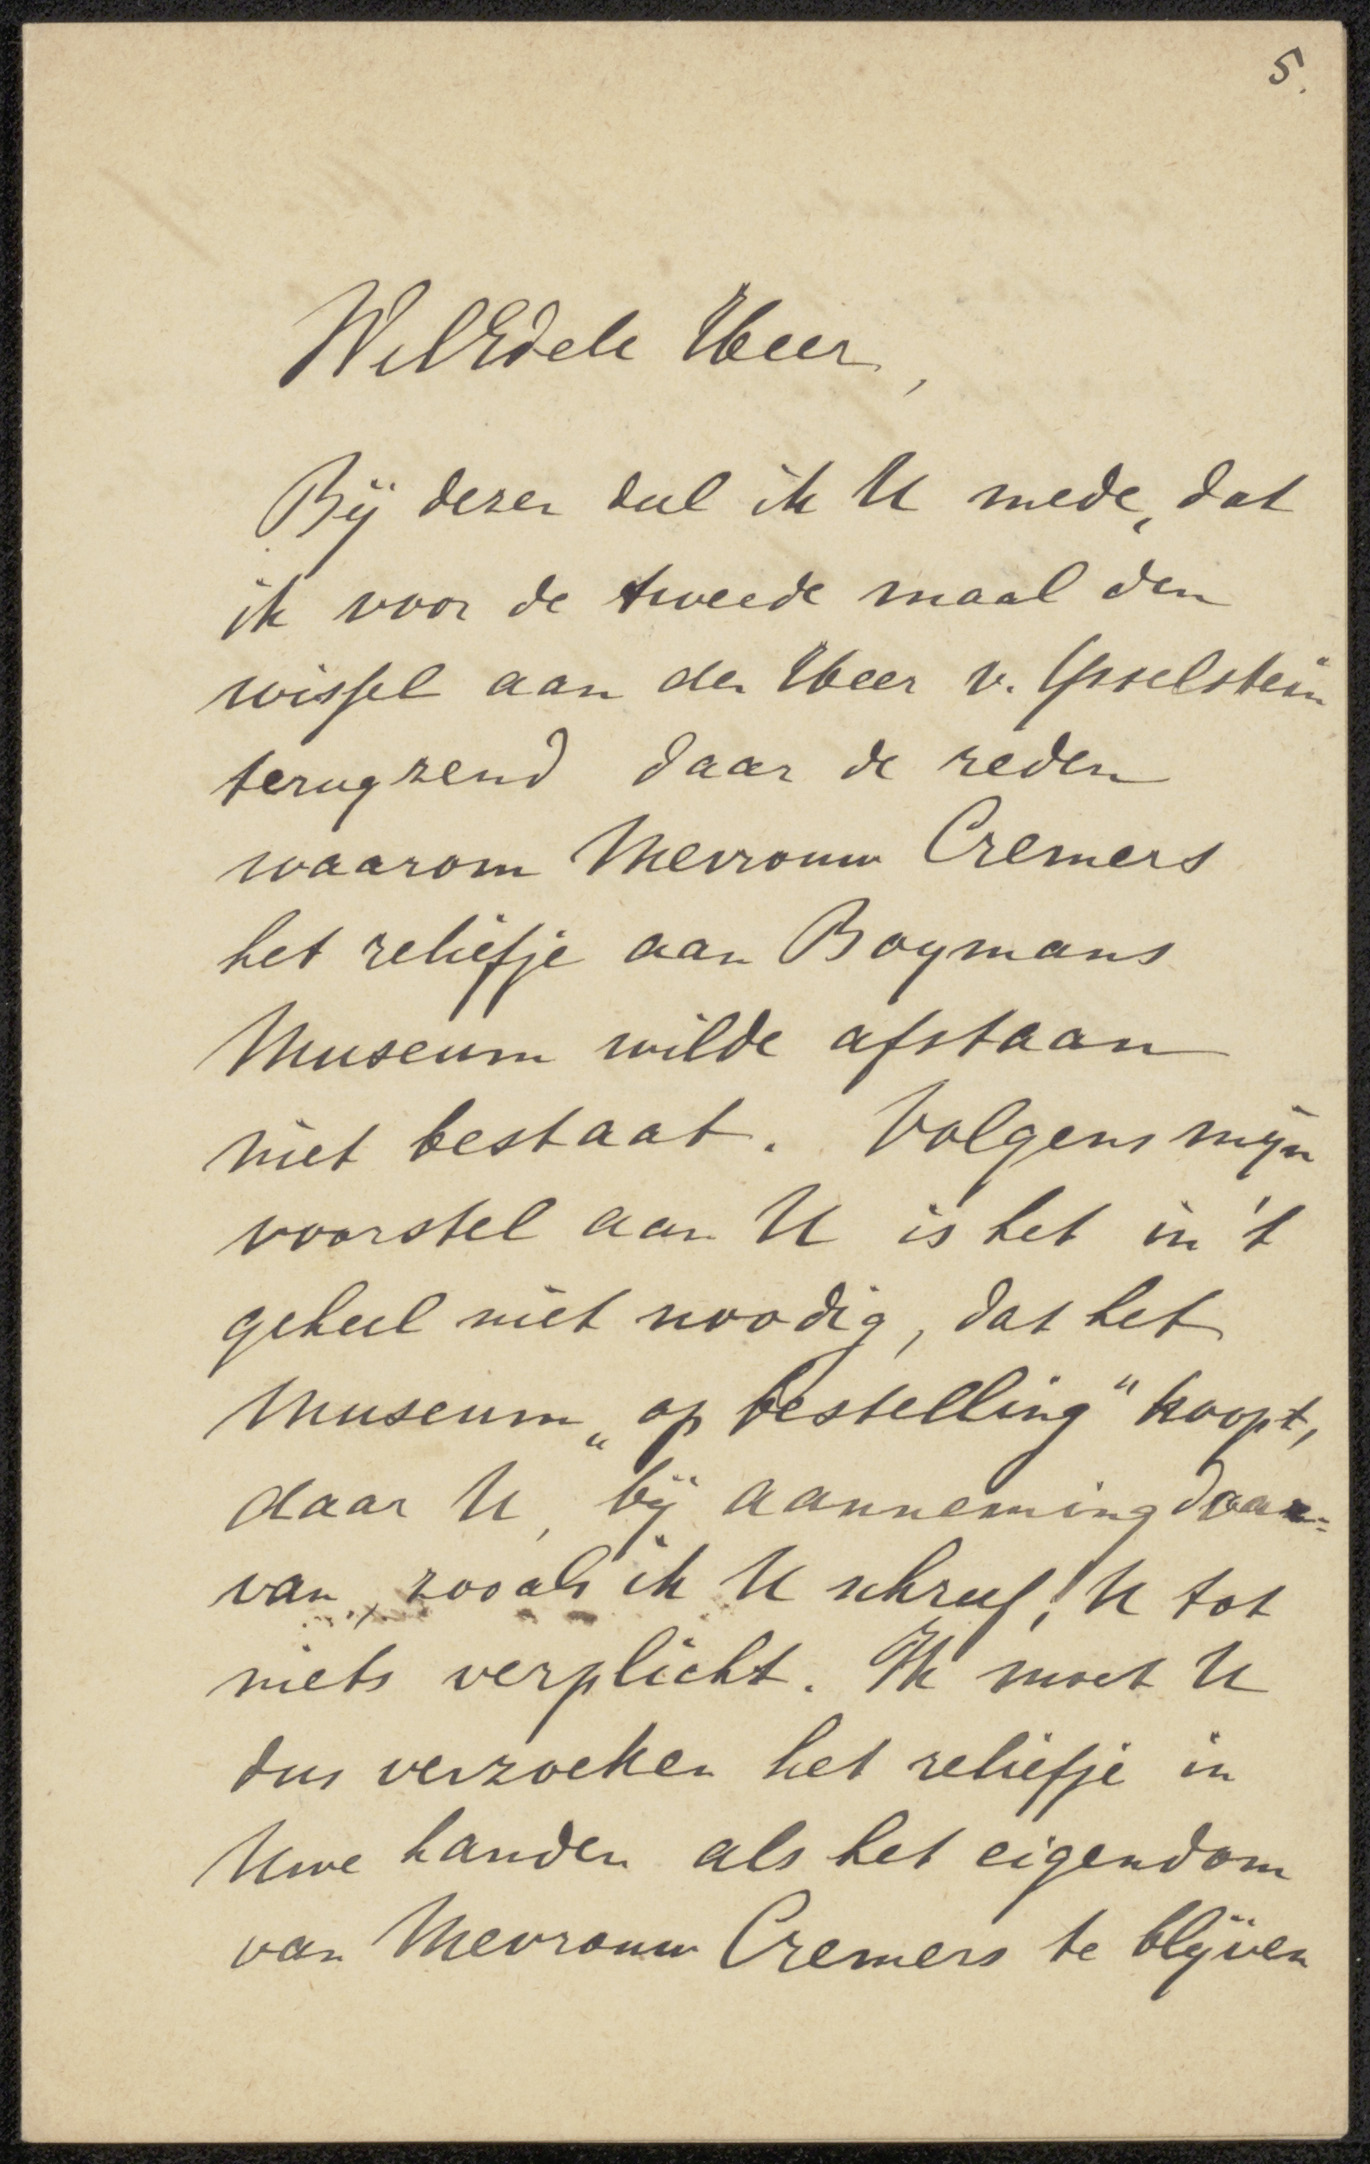 5.
WelEdele Heer,
Bij dezen deel ik U mede, dat
ik voor de tweede maal den
wissel aan den Heer v. Ysselstein
terugzend daar de reden
waarom Mevrouw Cremers
het reliefje aan Boymans
Museum wilde afstaan
niet bestaat. Volgens mijn
voorstel aan U is het in 't
geheel niet noodig, dat het
Museum „op bestelling" koopt,
daar U, bij aanneming daar=
van, zooals ik U schreef, U tot
niets verplicht. Ik moet U
dus verzoeken het reliefje in
Uwe handen als het eigendom
van Mevrouw Cremers te blijven